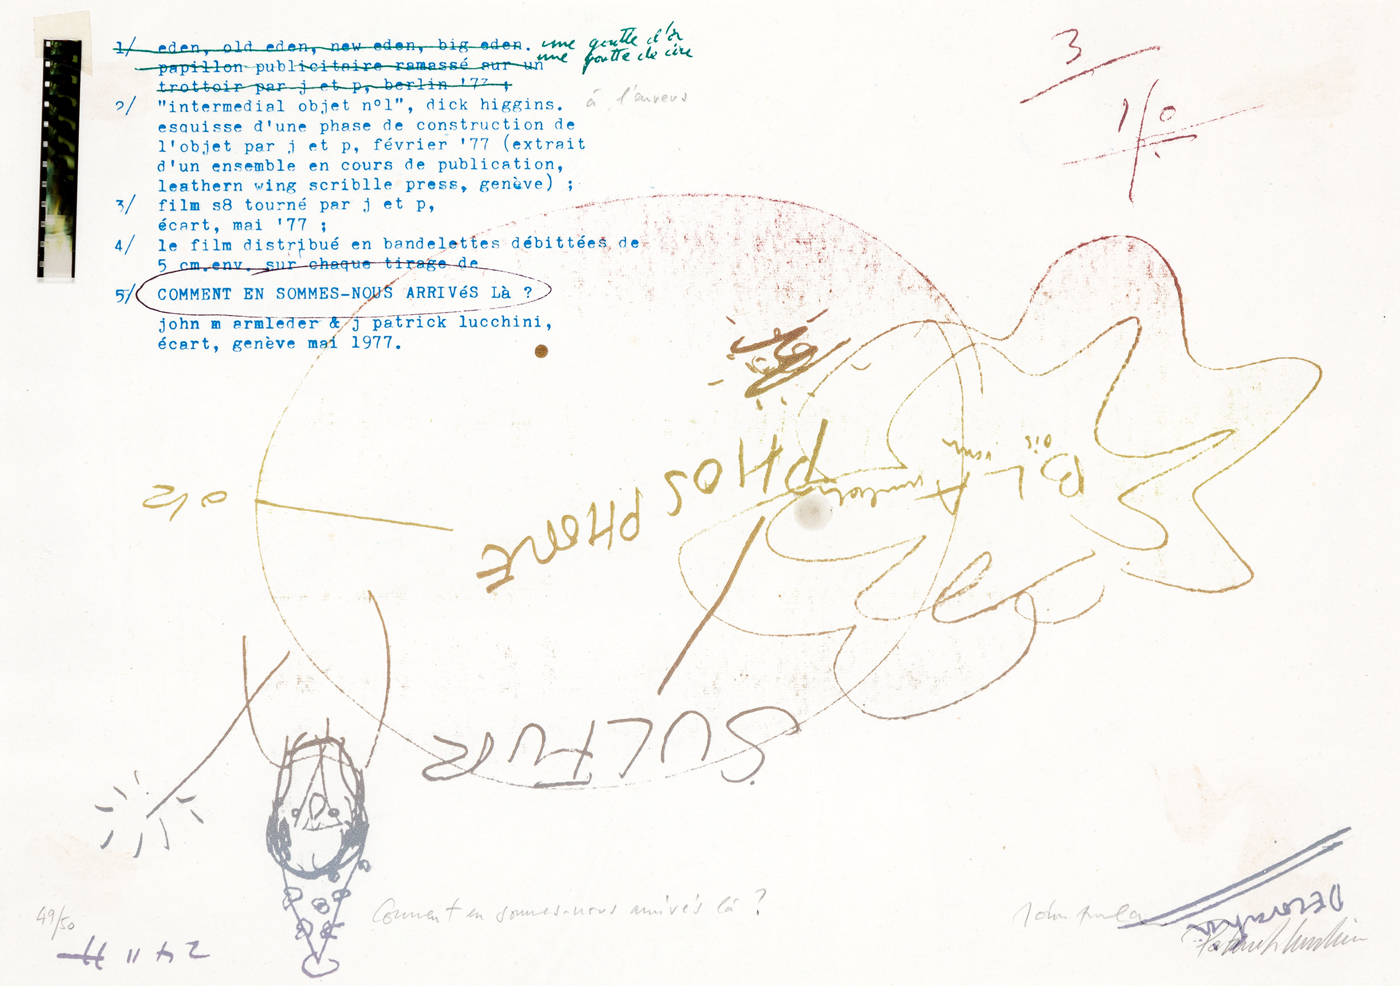 1/ eden, old eden, new eden, big eden. une goutte d'or
papillon publicitaire ramassé sur un une goutte de cire
trottoir par j et p, berlin '77 ;
2/ "intermedial objet nº1", dick higgins. à l'envers
esquisse d'une phase de construction de
l'objet par j et p, février '77 (extrait
d'un ensemble en cours de publication,
leathern wing scriblle press, genève) ;
3/ film s8 tourné par j et p,
écart, mai '77 ;
4/ le film distribué en bandelettes débittées de
5 cm.env. sur chaque tirage de
5/ COMMENT EN SOMMES-NOUS ARRIVéS Là ?
john m armleder & j patrick lucchini,
écart, genève mai 1977.
3
PHOSPHORE
SULFUR
49/50
Comment en sommes-nous arrivés là ?